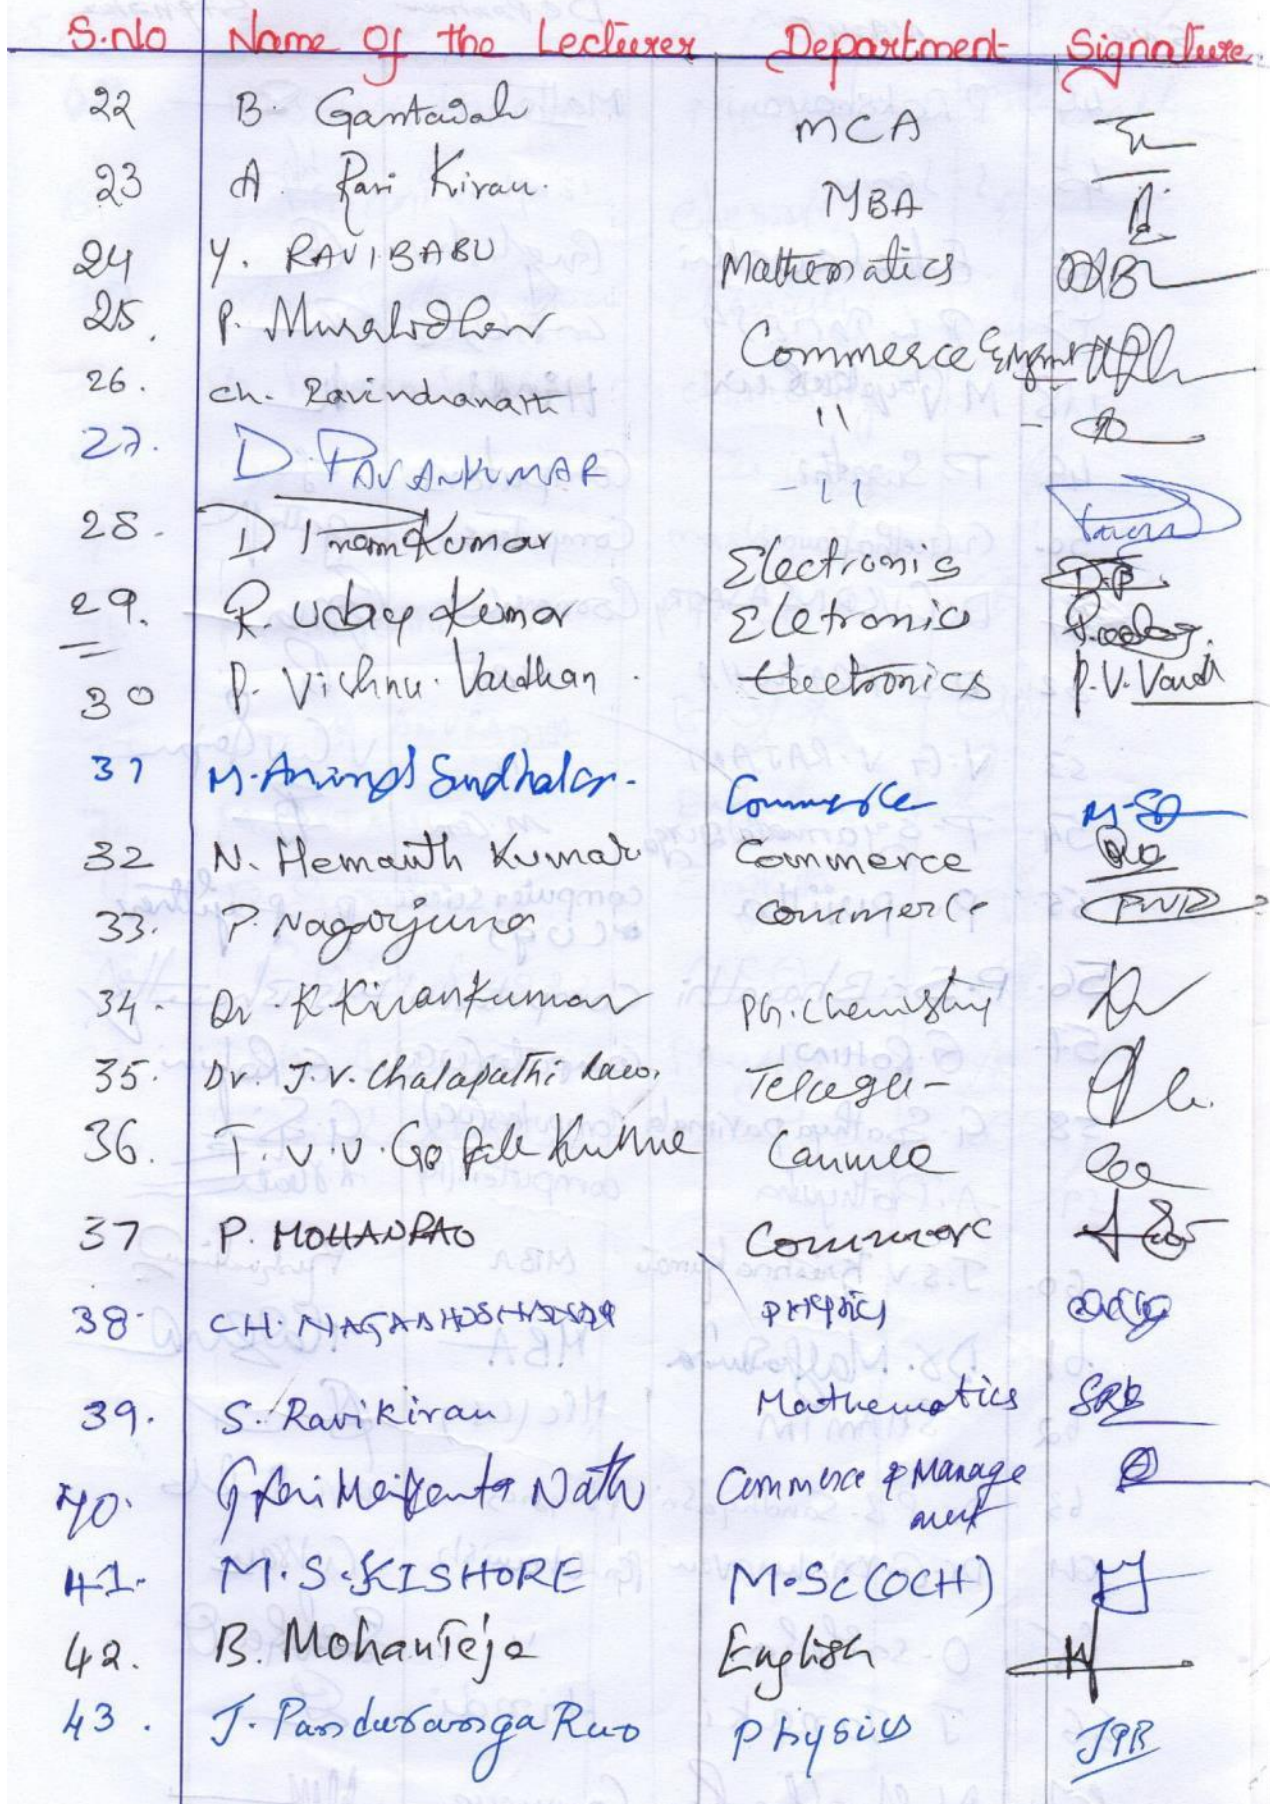 S.No Name Of the Lecturer Department Signature
22 B. MCA
23 A. Ravi Kiran. MBA
24 Y. RAVI BABU Mathematics
25. P. Muralidhar Commerce & Mgmt
26. Ch. Ravindranath "
27. D. PAVAN KUMAR -"
28. D Prem Kumar Electronis
29. R. Uday Kumar Eletronics
30 P. Vishnu. Vardhan. Electronics P.V. Vardh
31 M. Anand Sudhakar. Commerce
32 N. Hemanth Kumar Commerce
33. P. Nagarjuna commerce
34. Dr. K Kiran Kumar PG. Chemistry
35. Dr. J.V. Chalapathi Rao. Telugu
36. T.V.V. Gopala Kumar
37 P. MOHANRAO Commerc
38. CH. Physics
39. S. Ravi Kiran Mathematics SRK
40. Nath Commerce & Manage
ment
41. M.S.KISHORE M.Sc(OCH)
42. B. Mohan Teja English
43. J. Panduranga Rao Physics JPR